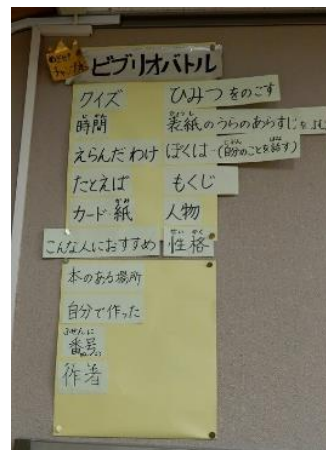 めざせ!
チャンプ本
ビブリオバトル
クイズ
ひみつをのこす
時間
表紙のうらのあらすじをよむ
えらんだわけ
ぼくは…(自分のことを話す)
たとえば
もくじ
カード・紙
人物
こんな人におすすめ
性格
せいかく
本のある場所
自分で作った
ふせんに
番号
作者